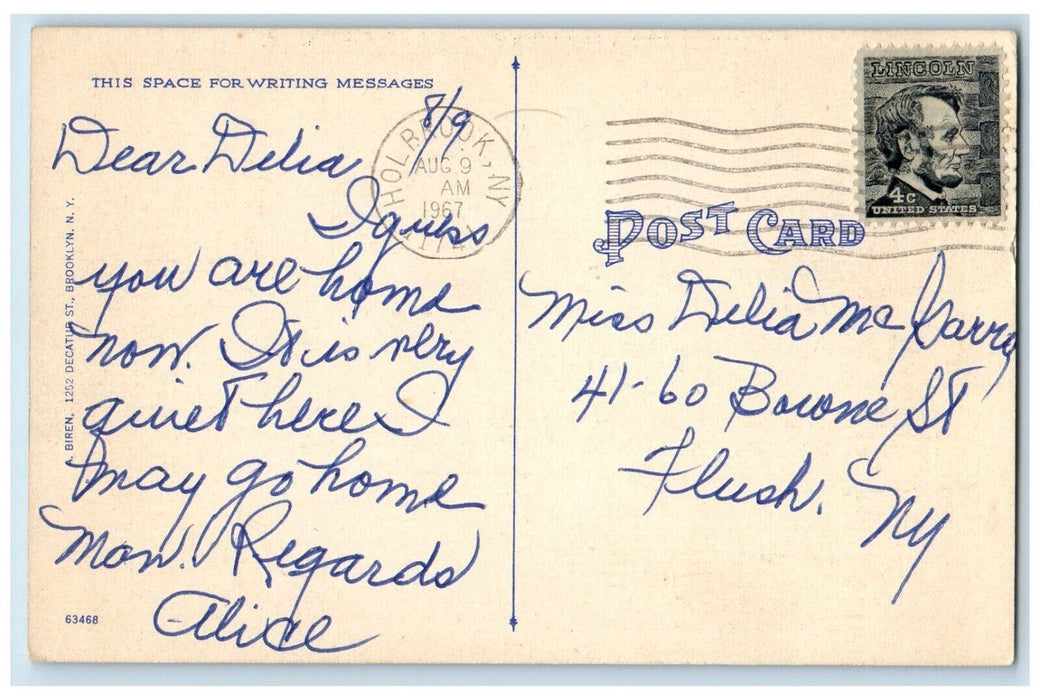 THIS SPACE FOR WRITING MESSAGES
8/9
Dear Delia
I guess
you are home
now. It is very
quiet here I
may go home
Mon. Regards
Alice
A. BIREN, 1252 DECATUR ST., BROOKLYN, N. Y.
63468
HOLBROOK, NY
AUG 9
AM
1967
LINCOLN
4c
UNITED STATES
POST CARD
Miss Delia Mc Garry
41-60 Bowne St
Flush. NY